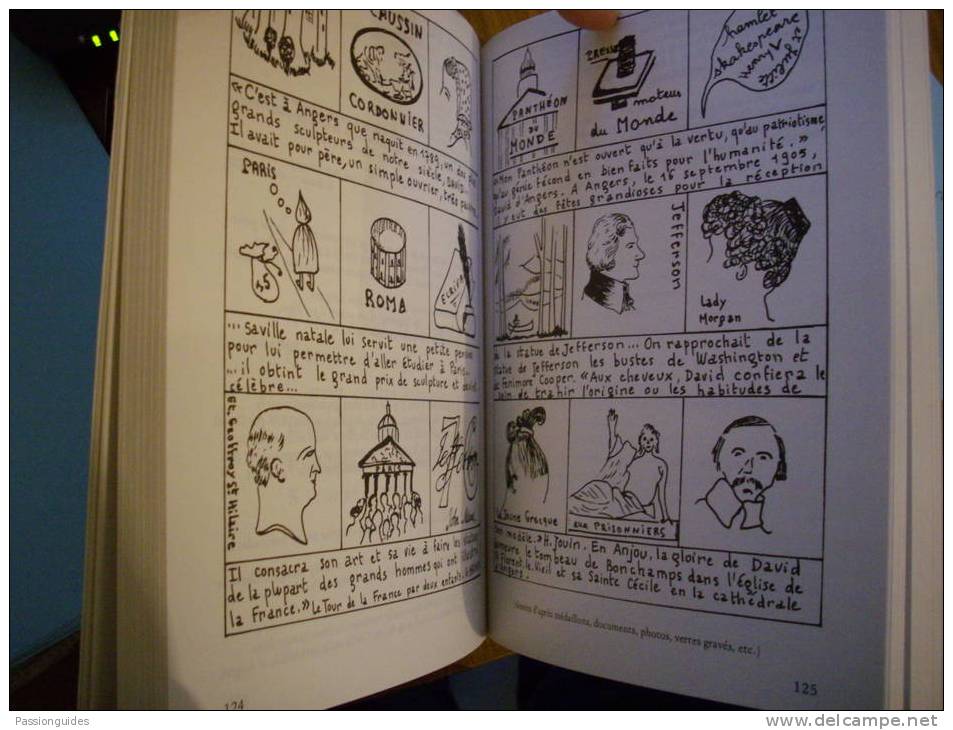 CAUSSIN
CORDONNIER
C'est à Angers que naquit en 1789, un des plus
grands sculpteurs de notre siècle, David.
Il avait pour père, un simple ouvrier, très pauvre,
PARIS
45
ROMA
... saville natale lui servit une petite
pour lui permettre d'aller étudier à Paris...
... il obtint le grand prix de sculpture et
célèbre...
Et. Geoffroy St Hilaire
Il consacra son art et sa vie à faire les
de la plupart des grands hommes qui ont
la France.» Le Tour de la France par deux enfants.
124
PANTHÉON
DU
MONDE
moteur
du Monde
hamlet
shakespeare
henry V
Mon Panthéon n'est ouvert qu'à la vertu, qu'au patriotisme,
qu'au génie fécond en bienfaits pour l'humanité.»
David d'Angers. A Angers, le 16 septembre 1905,
il y eut des fêtes grandioses pour la réception
Jefferson
Lady
Morgan
de la statue de Jefferson... On rapprochait de la
statue de Jefferson les bustes de Washington et
de Fenimore Cooper. «Aux cheveux, David confiera le
soin de trahir l'origine ou les habitudes de
la Jeune Grecque
aux PRISONNIERS
son modèle.» H. Jouin. En Anjou, la gloire de David
demeure le tombeau de Bonchamps dans l'église de
St Florent le Vieil et sa Sainte Cécile en la cathédrale
d'Angers.
(dessins d'après médaillons, documents, photos, verres gravés, etc.)
125
Passionguides
www.delcampe.net